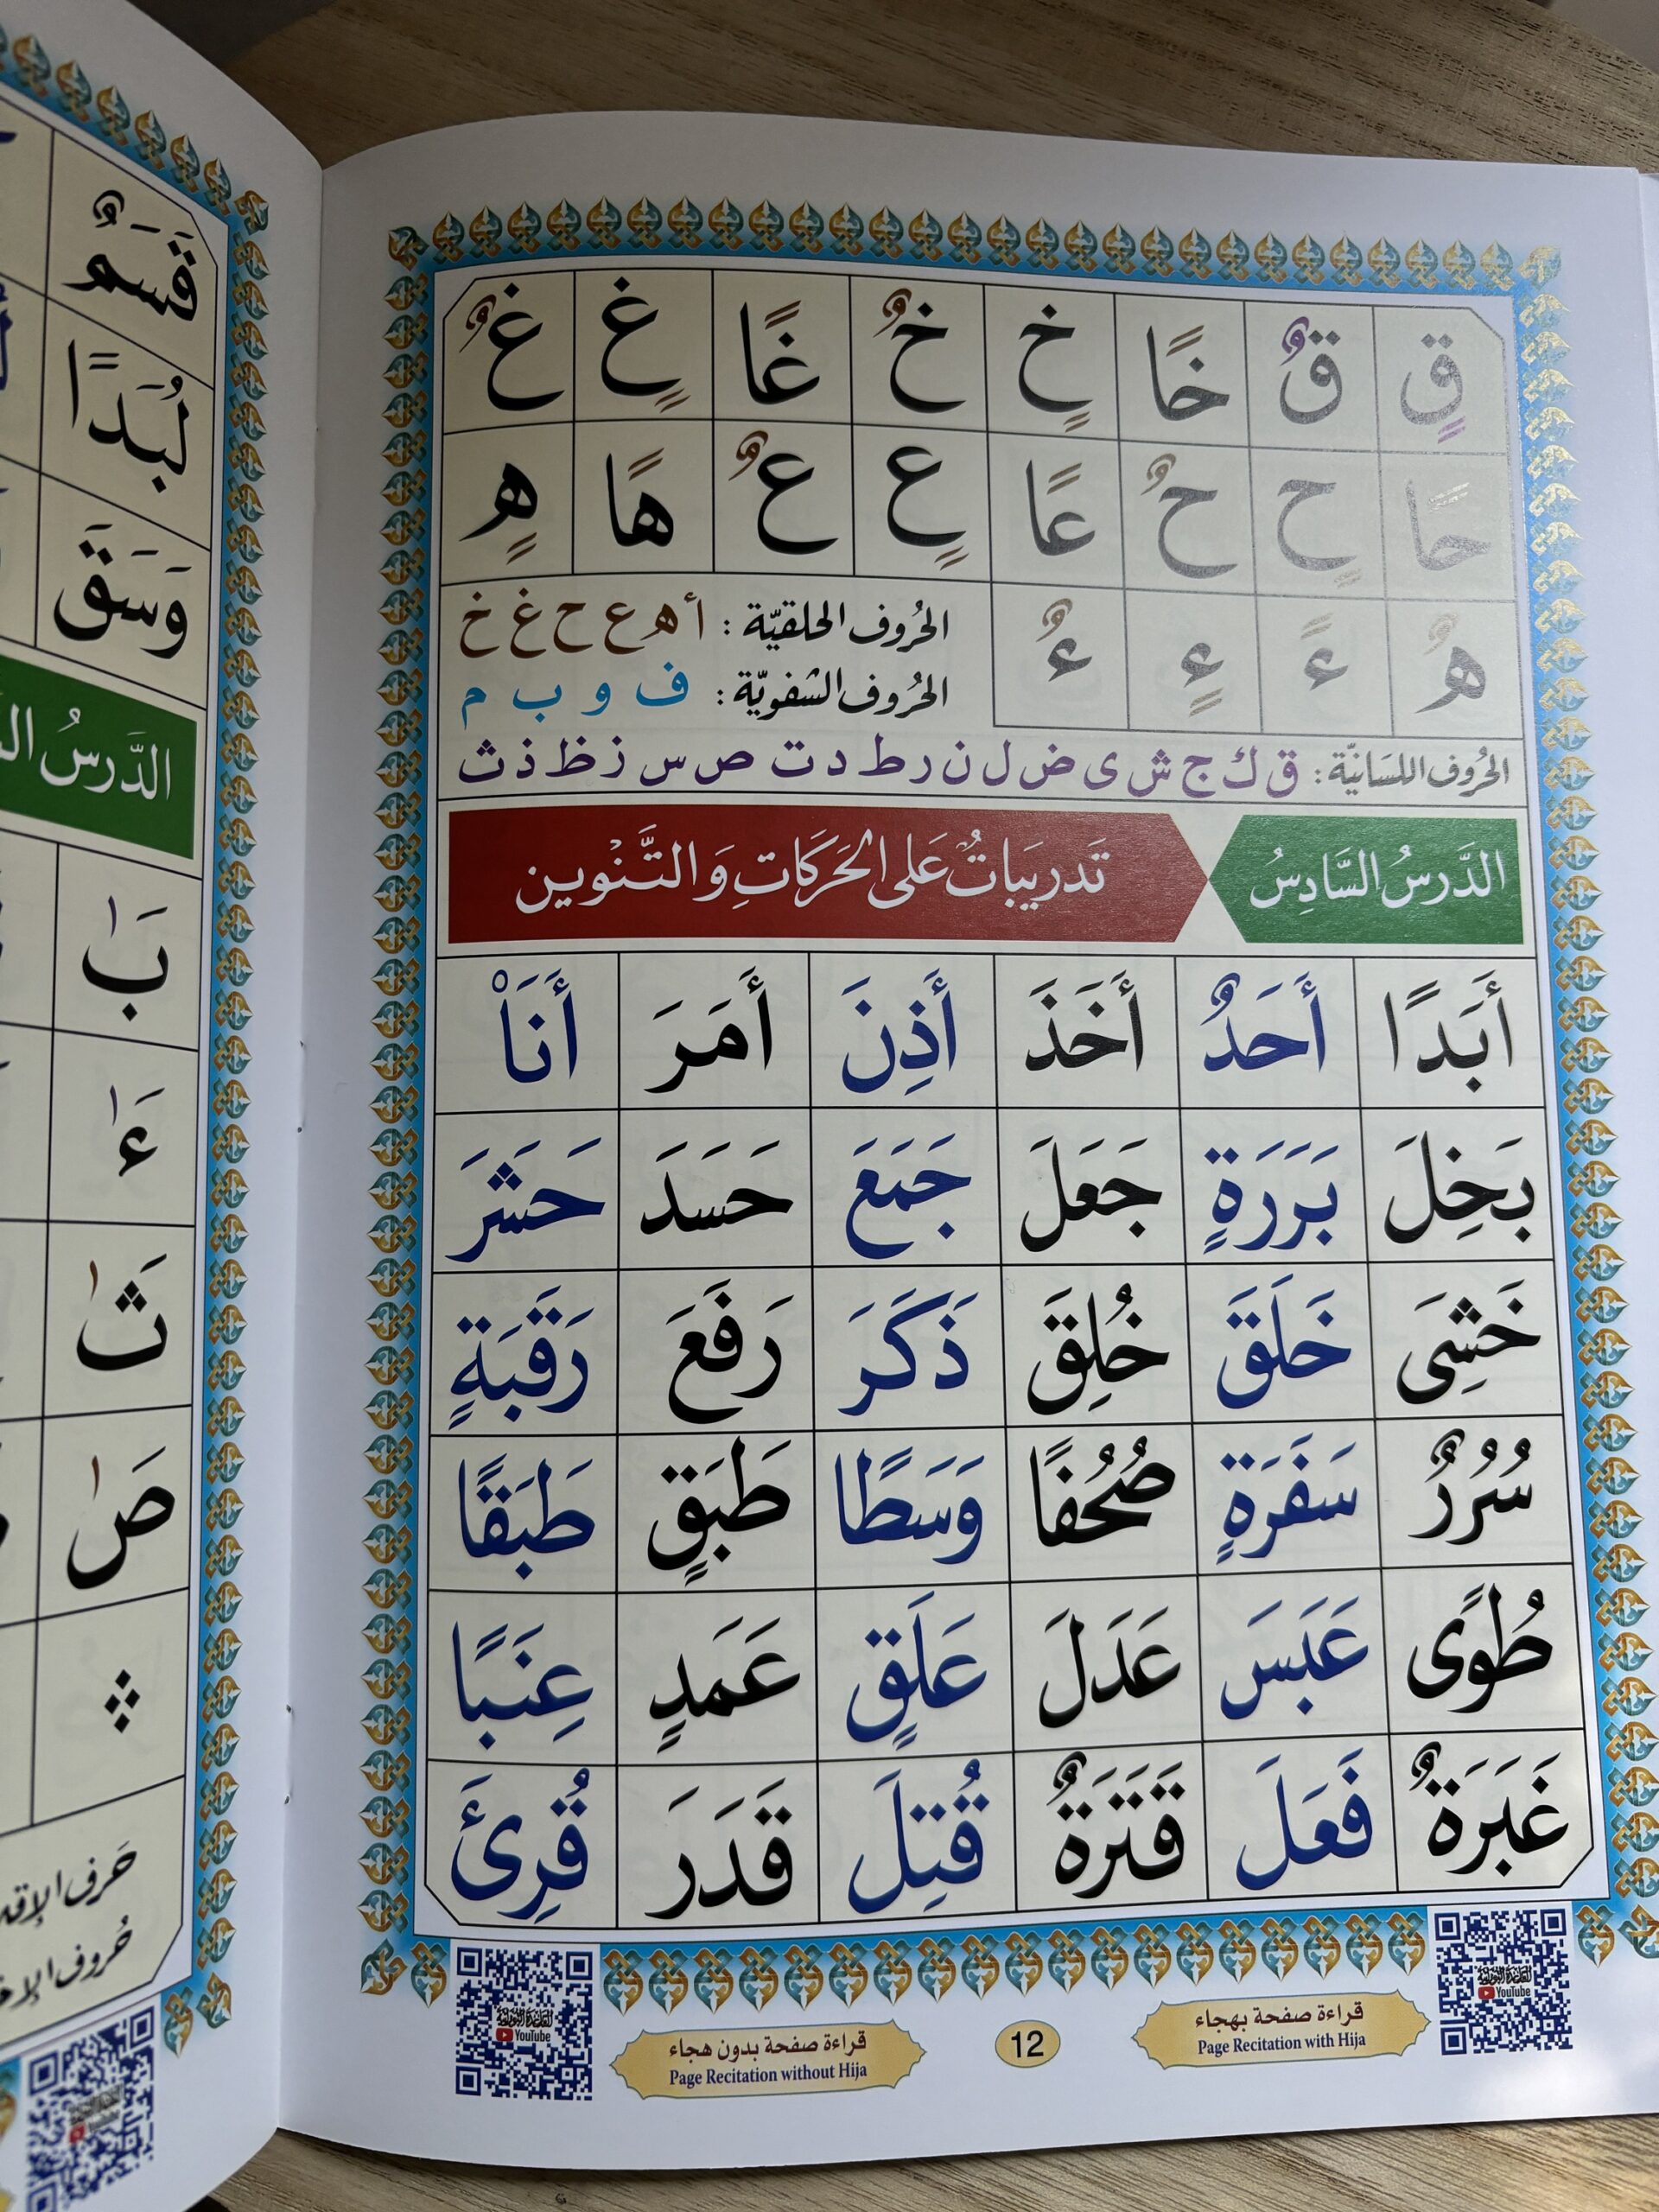 قٍ قٌ خًا خٍ خٌ غًا غٍ غٌ
حًا حٍ حٌ عًا عٍ عٌ هًا هٍ
هٌ ءً ءٍ ءٌ
الحُروف الحلقيّة : أ ه ع ح غ خ
الحُروف الشفويّة : ف و ب م
الحُروف اللسَانيّة : ق ك ج ش ى ض ل ن ر ط د ت ص س ز ظ ذ ث
الدَّرسُ السَّادِسُ
تَدرِيبَاتٌ عَلى الحَرَكَاتِ وَالتَّنْوين
أَبَدًا أَحَدٌ أَخَذَ أَذِنَ أَمَرَ أَنَا۠
بَخِلَ بَرَرَةٍ جَعَلَ جَمَعَ حَسَدَ حَشَرَ
خَشِىَ خَلَقَ خُلِقَ ذَكَرَ رَفَعَ رَقَبَةٍ
سُرُرٌ سَفَرَةٍ صُحُفًا وَسَطًا طَبَقٍ طَبَقًا
طُوًى عَبَسَ عَدَلَ عَلَقٍ عَمَدٍ عِنَبًا
غَبَرَةٌ فَعَلَ قَتَرَةٌ قُتِلَ قَدَرَ قُرِئَ
قراءة صفحة بهجاء
Page Recitation with Hija
12
قراءة صفحة بدون هجاء
Page Recitation without Hija
YouTube
YouTube
قَسَمٌ
لُبَدًا
وَسَقَ
الدَّرسُ
بَٰ
ءَٰ
ثَٰ
صَٰ
حَرف
حُروف